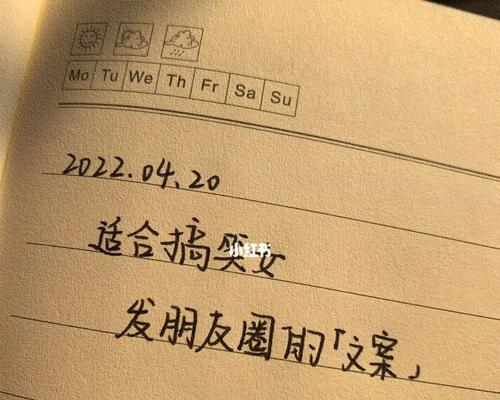 Mo Tu We Th Fr Sa Su
2022.04.20
适合搞笑女
小红书
发朋友圈的「文案」